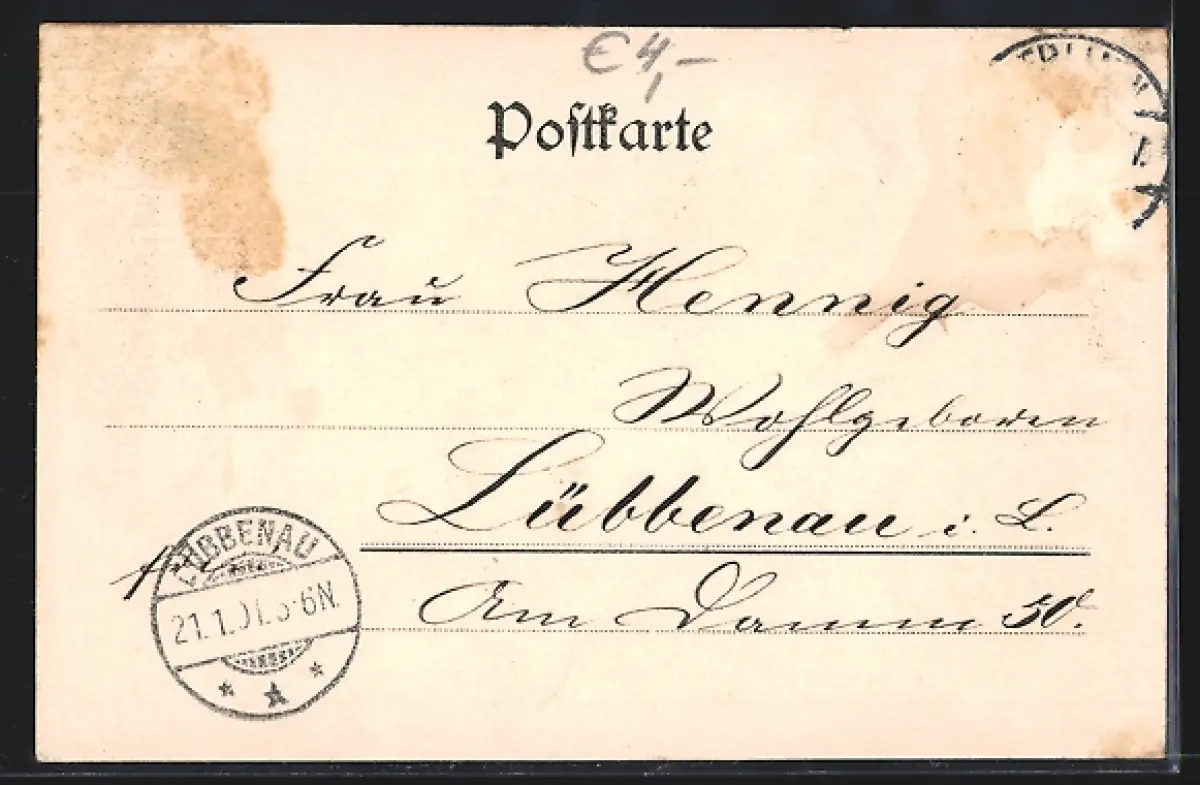 € 4,-
Postkarte
Frau Hennig
Wohlgeboren
Lübbenau i. L.
LÜBBENAU
21.1.01. 5-6N.
Am Damm